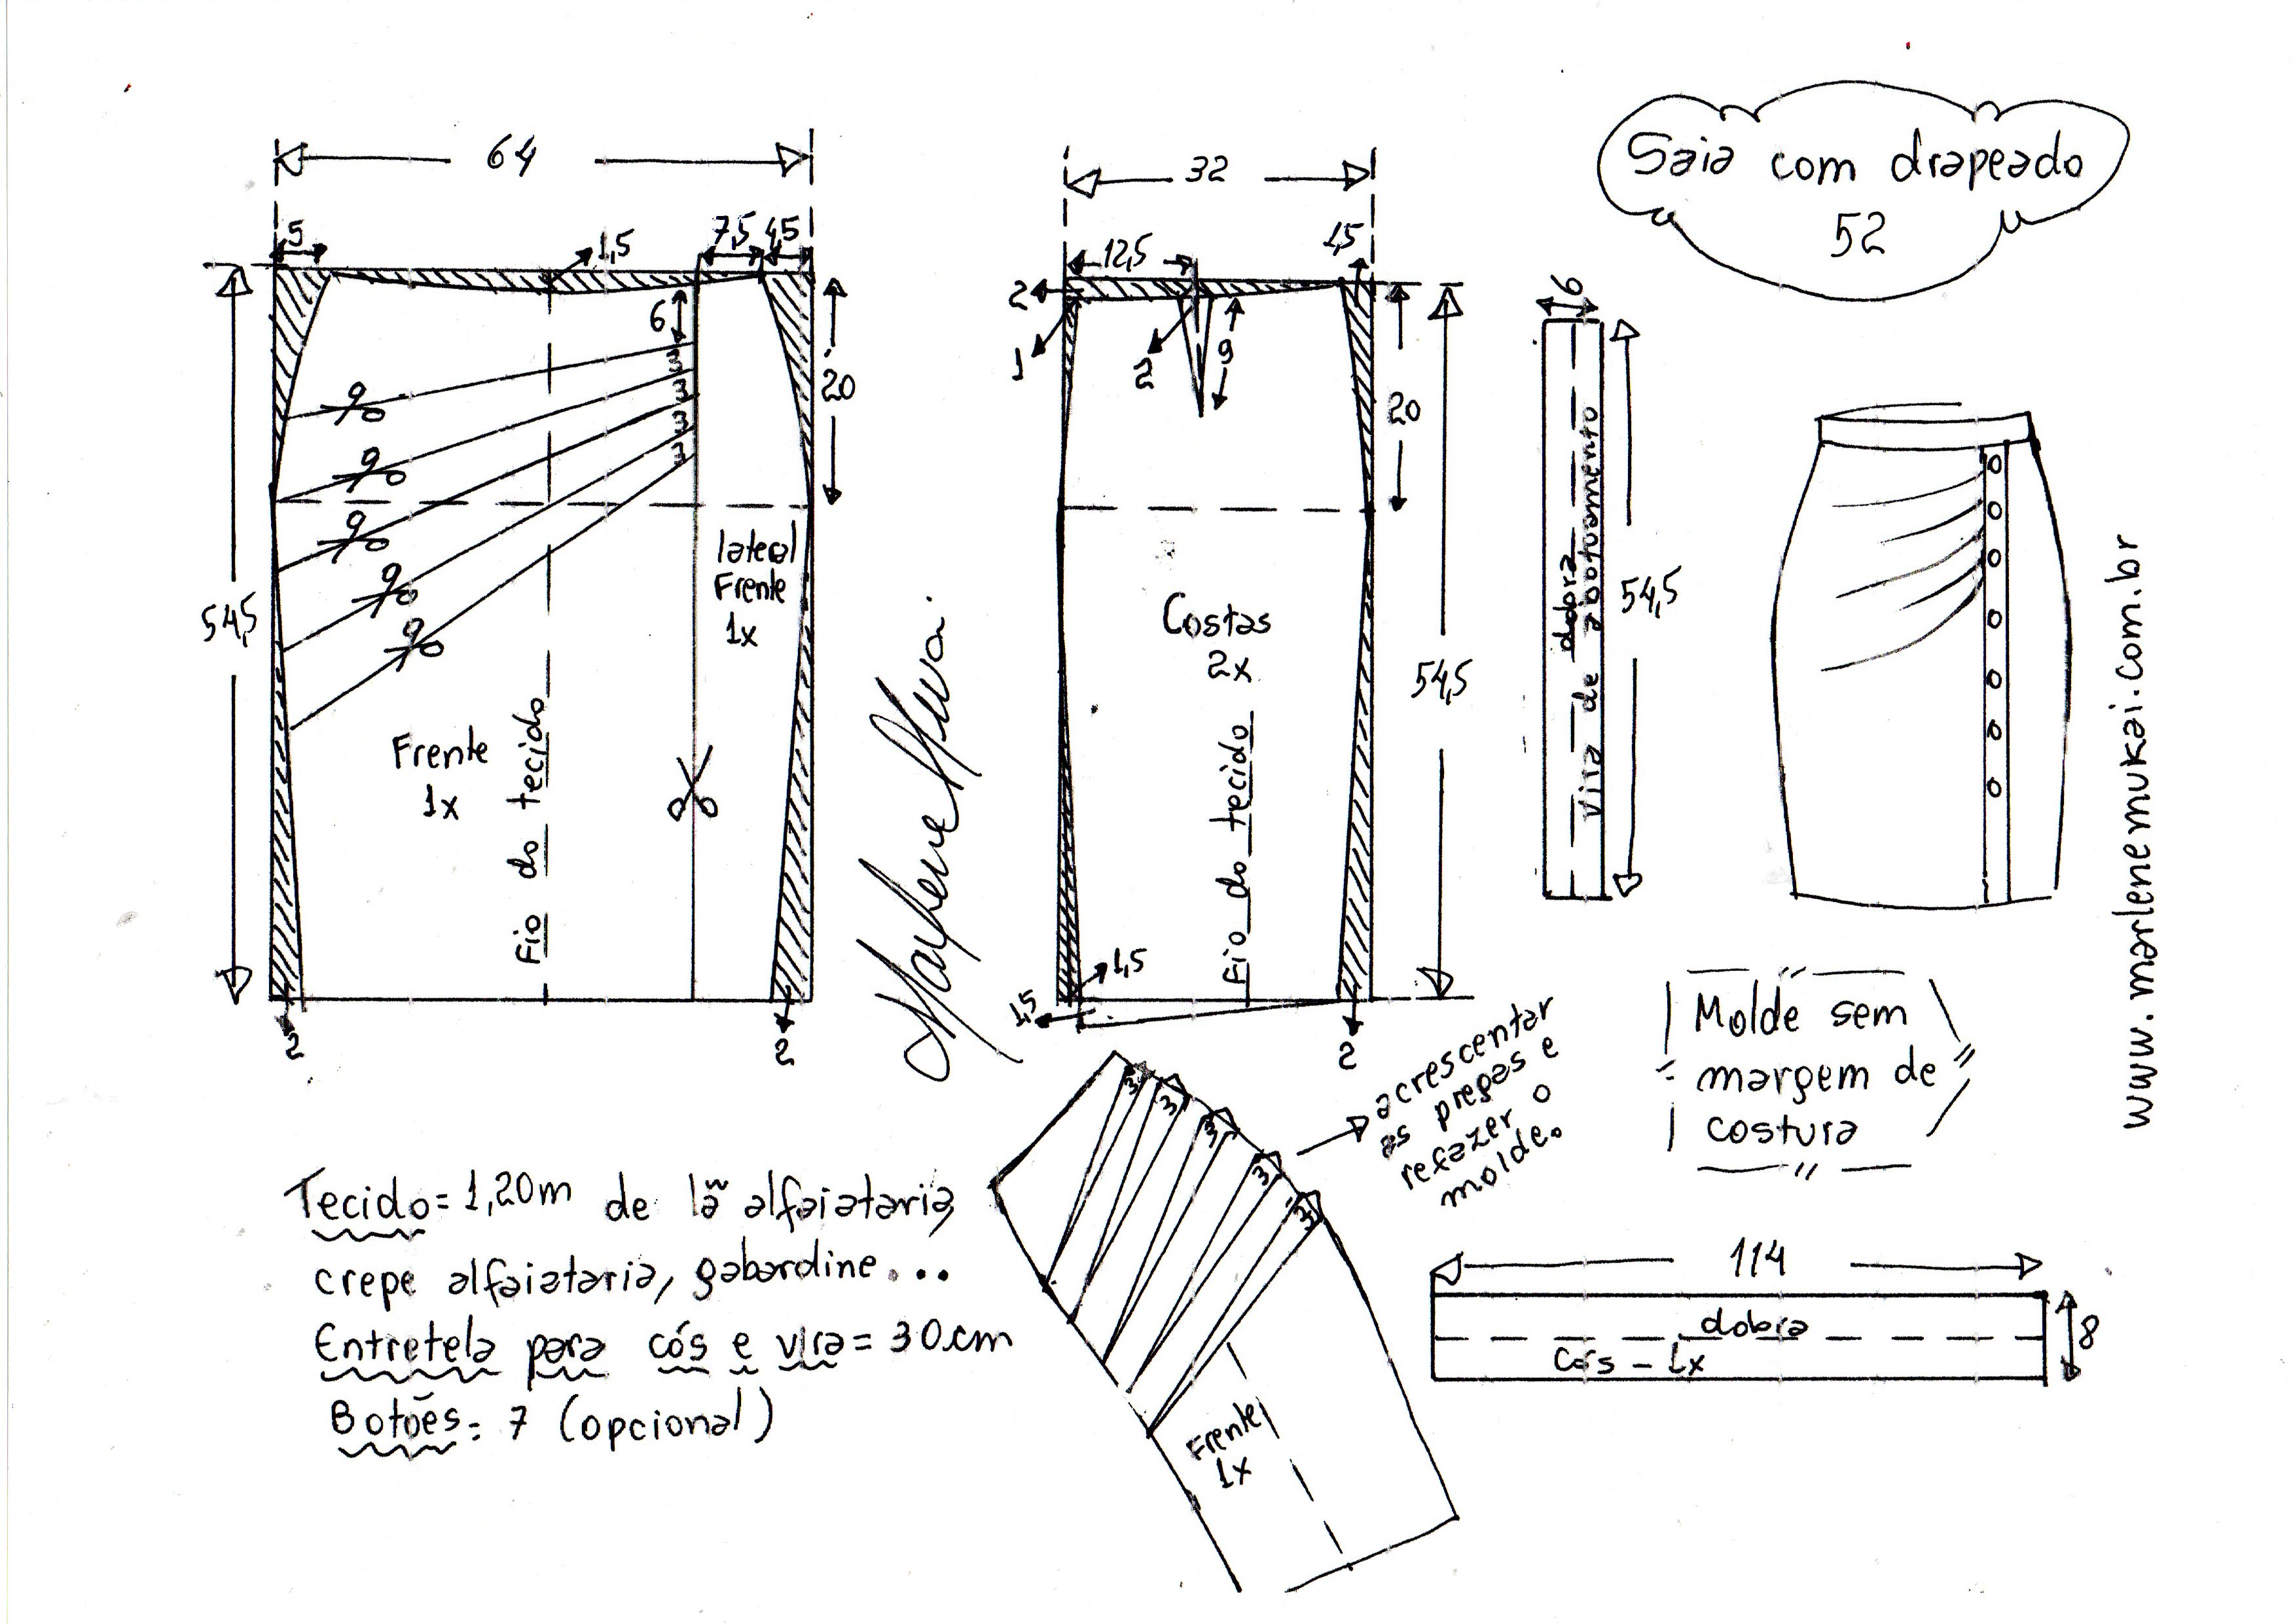 Saia com drapeado
52
64
5
1,5
7,5
4,5
6
3
3
3
3
20
54,5
lateral
Frente
1x
Frente
1x
Fio do tecido
2
2
32
12,5
1,5
2
1
2
9
20
Costas
2x
54,5
Fio do tecido
1,5
1,5
2
6
dobra
vira de abotoamento
54,5
www.marlenemukai.com.br
Molde sem
margem de
costura
acrescentar
as pregas e
refazer o
molde.
3
3
3
3
3
Frente
1x
114
dobra
cós - 1x
8
Tecido = 1,20m de lã alfaiataria,
crepe alfaiataria, gabardine...
Entretela para cós e vira = 30 cm
Botões = 7 (opcional)